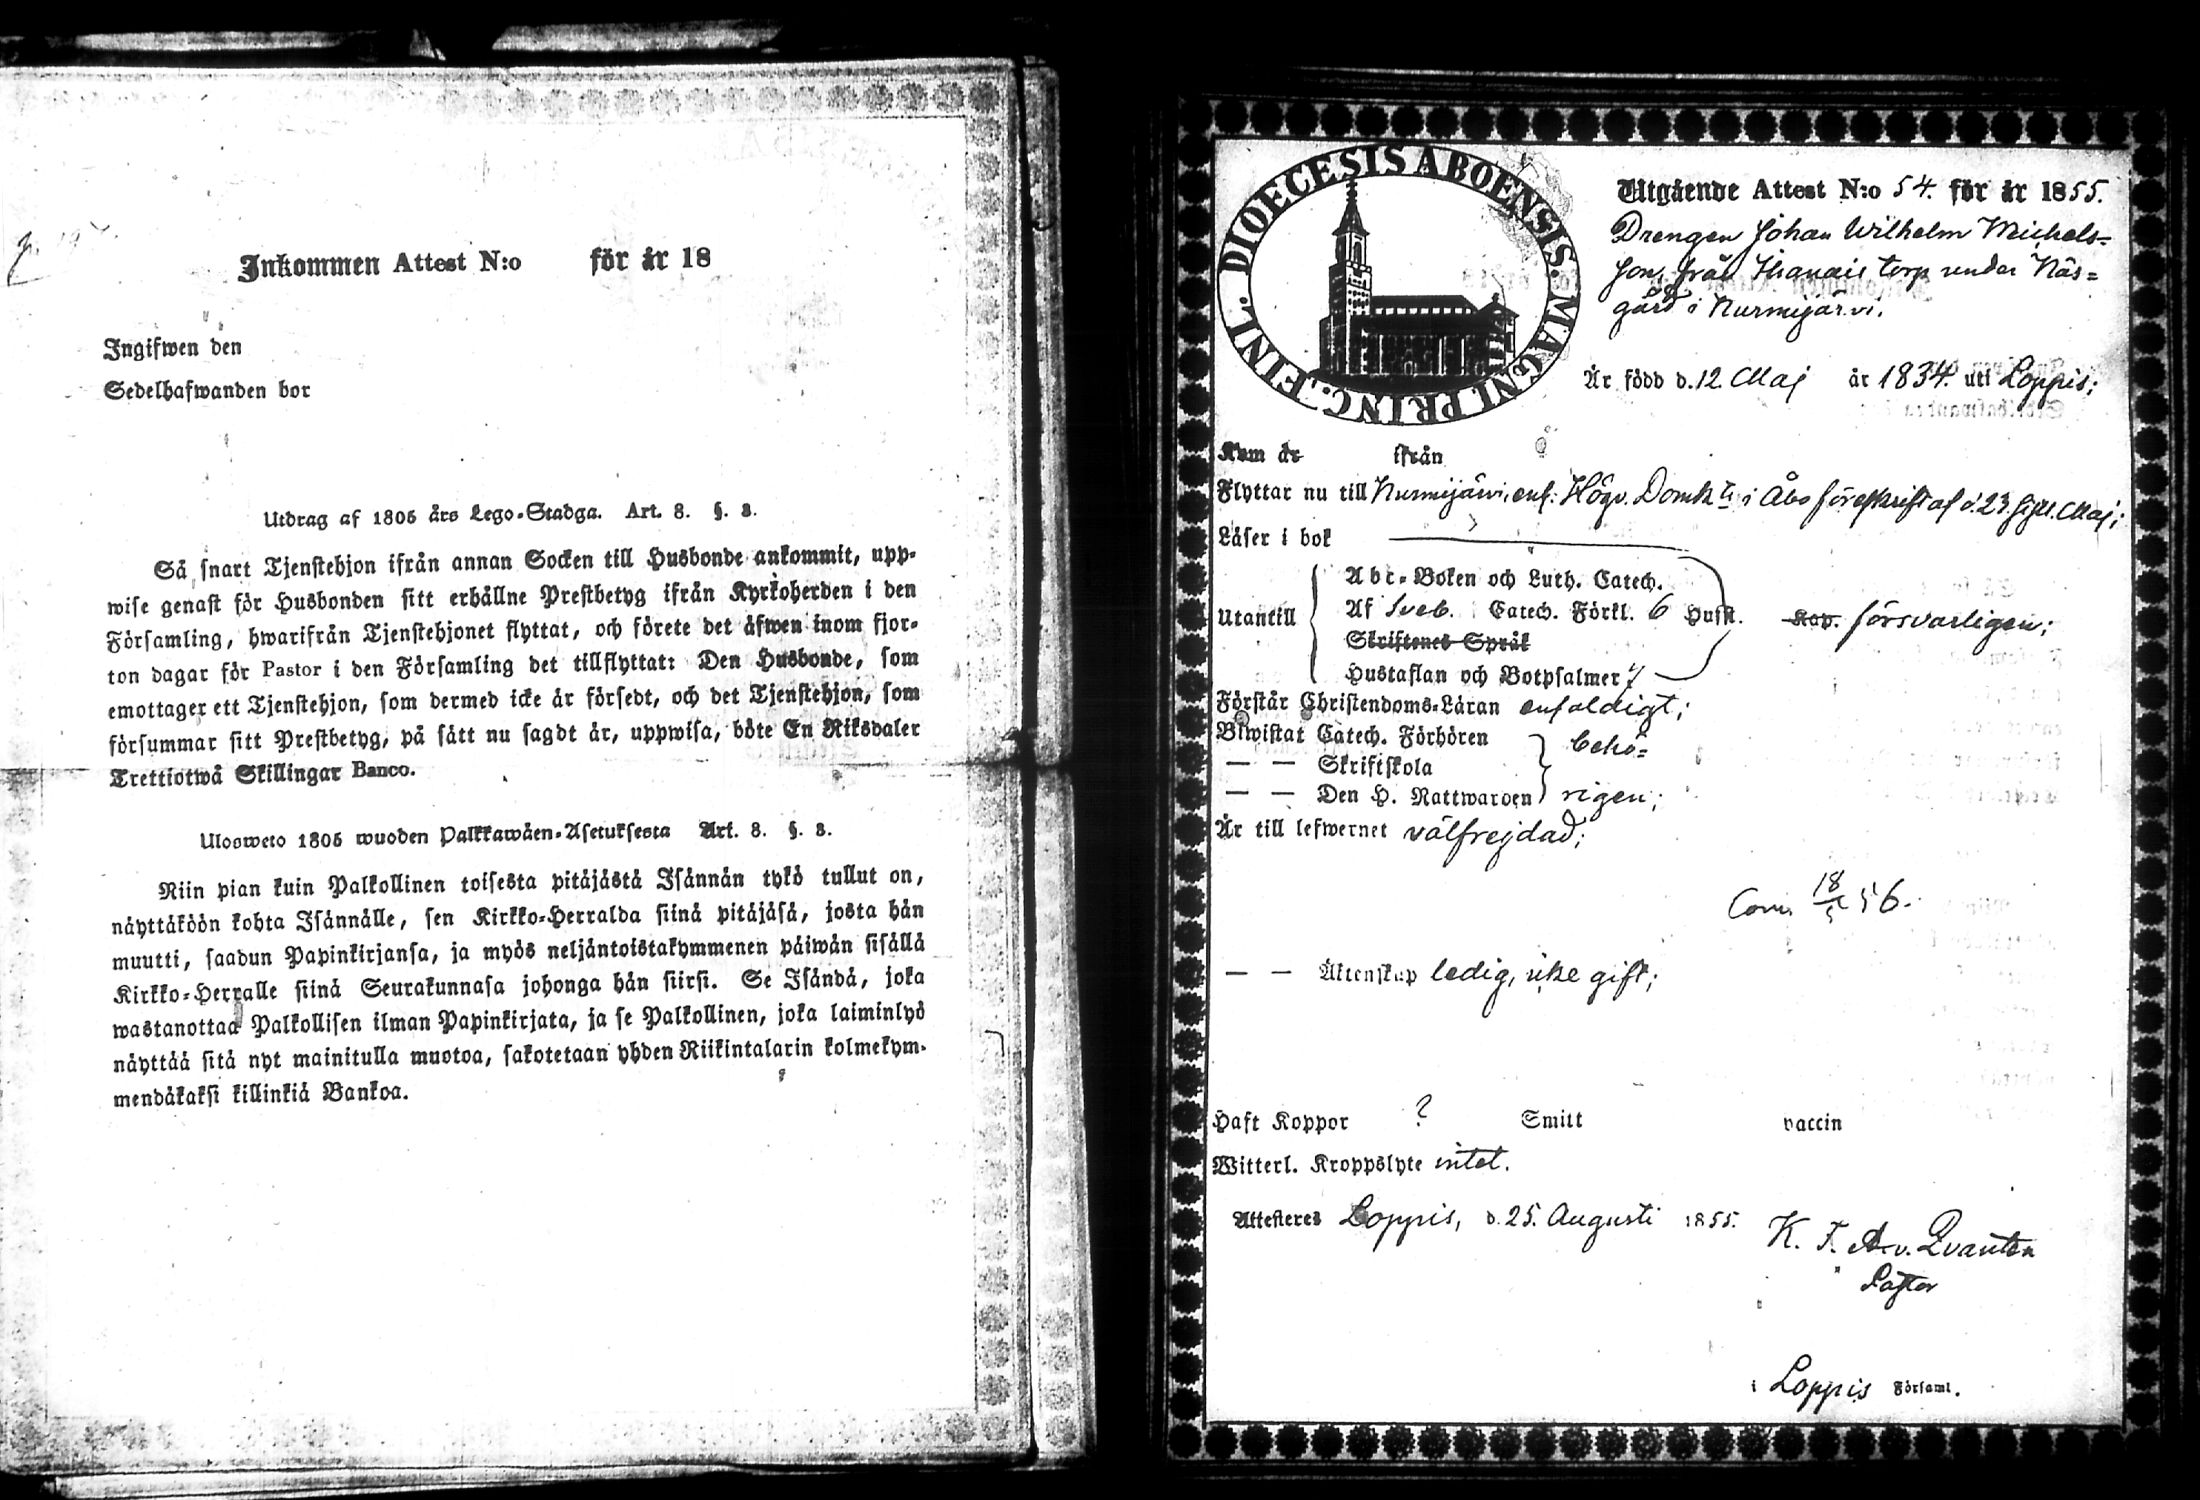 Inkommen Attest N:o för år 18
Ingifwen den
Sedelhafwanden bor
Utdrag af 1805 års Lego-Stadga. Art. 8. §. 3.
Så snart Tjenstehjon ifrån annan Socken till Husbonde ankommit, upp-
wise genast för Husbonden sitt erhållne Prestbetyg ifrån Kyrkoherden i den
Församling, hwarifrån Tjenstehjonet flyttat, och förete det äfwen inom fjor-
ton dagar för Pastor i den Församling det tillflyttat: Den Husbonde, som
emottager ett Tjenstehjon, som dermed icke är försedt, och det Tjenstehjon, som
försummar sitt Prestbetyg, på sätt nu sagdt är, uppwisa, böte En Riksdaler
Trettiotwå Skillingar Banco.
Ulosweto 1805 wuoden Palkkawäen-Asetuksesta Art. 8. §. 3.
Niin pian kuin Palkollinen toisesta pitäjästä Isännän tykö tullut on,
näyttäköön kohta Isännälle, sen Kirkko-Herralda siinä pitäjäsä, josta hän
muutti, saadun Papinkirjansa, ja myös neljäntoistakymmenen päiwän sisällä
Kirkko-Herralle siinä Seurakunnasa johonga hän siirsi. Se Isändä, joka
wastanottaa Palkollisen ilman Papinkirjata, ja se Palkollinen, joka laiminlyö
näyttää sitä nyt mainitulla muotoa, sakotetaan yhden Riikintalarin kolmekym-
mendäkaksi killinkiä Bankoa.
DIOECESIS ABOENSIS. MAGNI PRINC. FINL.
Utgående Attest N:o 54. för år 1855.
Drengen Johan Wilhelm Michels-
son, från torp under Näs-
gård i Nurmijärvi.
Är född d. 12 Maj år 1834. uti Loppis;
Kom år ifrån
Flyttar nu till Nurmijärvi, enl. Högv. Domk i Åbo föreskrift af d. 23 Maj;
Läser i bok
Abc-Boken och Luth. Catech.
Utantill Af Sveb. Catech. Förkl. 6 Husst. Kap. försvarligen;
Skriftenes Språk
Hustaflan och Botpsalmer
Förstår Christendoms-Läran enfaldigt;
Biwistat Catech. Förhören behö-
— — Skriftskola
— — Den H. Nattwarden rigen;
Är till lefwernet välfrejdad;
Com. 18/5 56.
— — Äktenskap ledig, icke gift;
Haft Koppor ? Smitt vaccin
Witterl. Kroppslyte intet.
Attesteres Loppis, d. 25. Augusti 1855.
K. F. A. v. Qvanten
Pastor
i Loppis Församl.